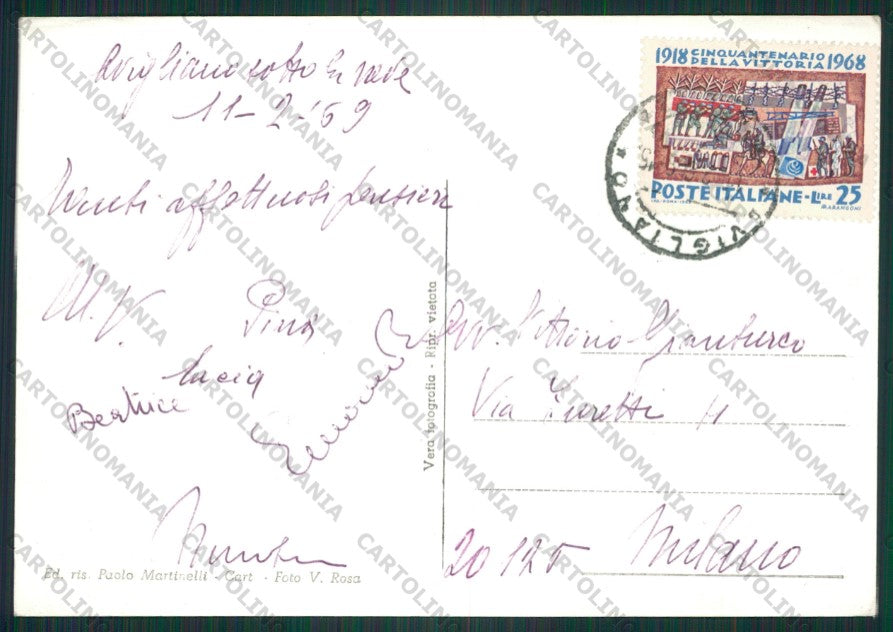 Avigliano sotto la neve
11-2-'69
Tanti affettuosi pensieri
M. V.
Pina
Lucia
Beatrice
Ed. ris. Paolo Martinelli - Cart - Foto V. Rosa
Vera fotografia - Ripr. vietata
1918 CINQUANTENARIO DELLA VITTORIA 1968
POSTE ITALIANE - LIRE 25
MARANGONI
AVIGLIANO
Avv. Vittorio Gianturco
Via 11
20125 Milano
CARTOLINOMANIA